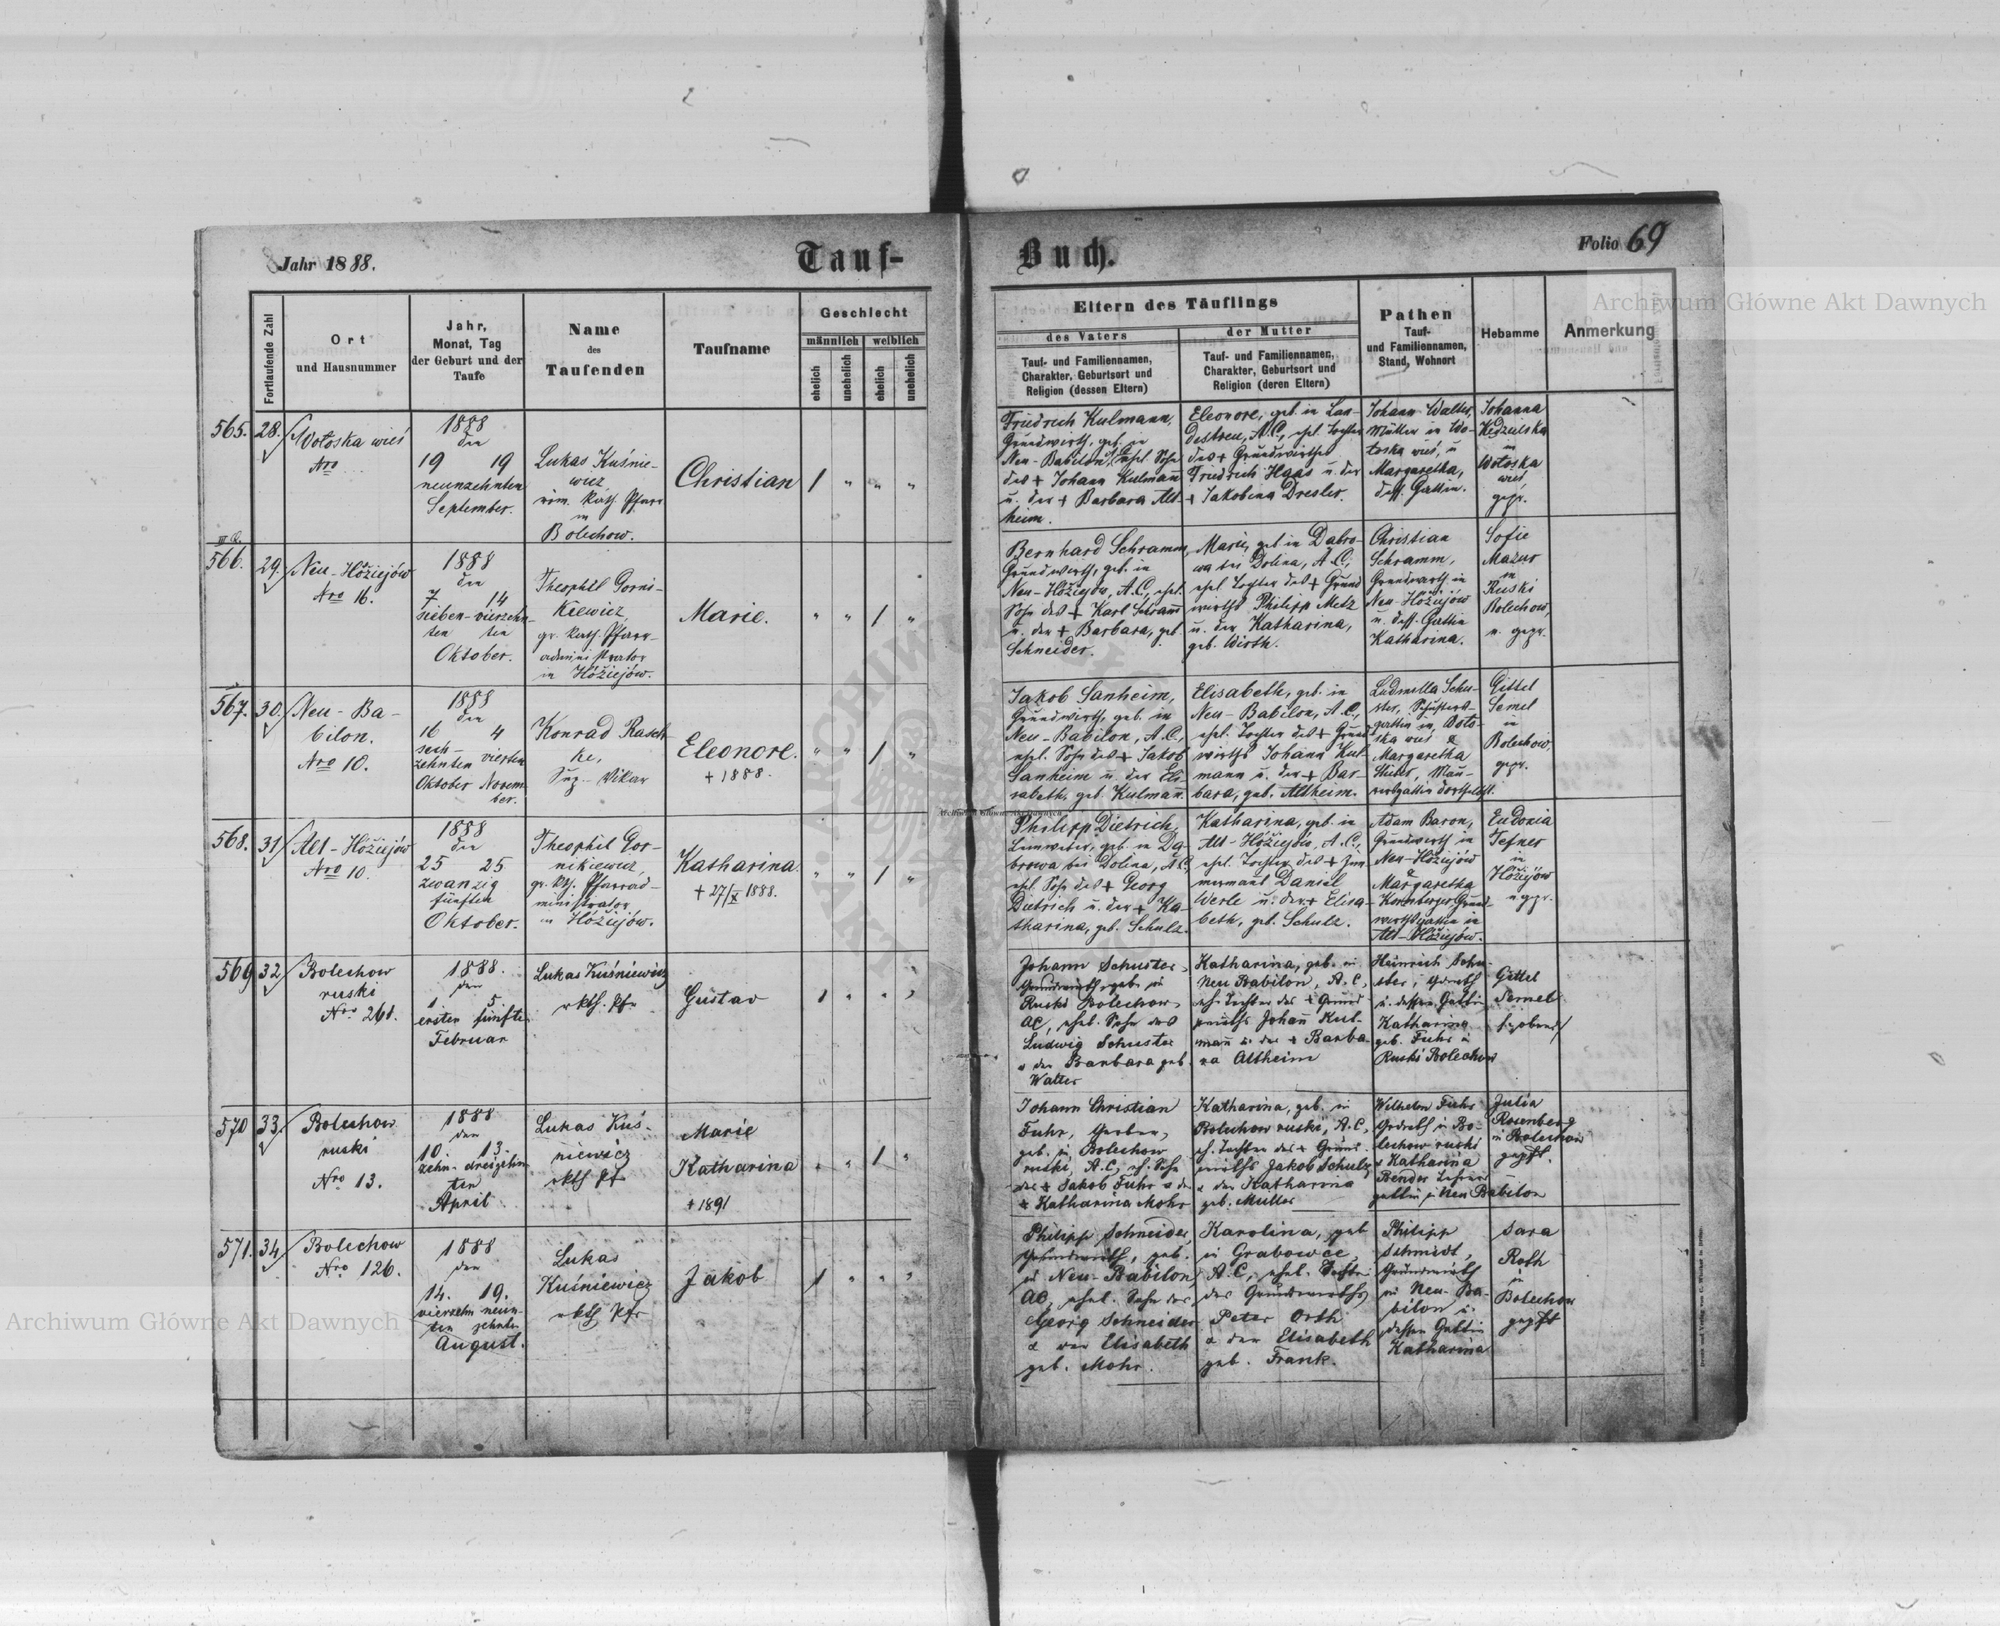 Jahr 1888.
Tauf-
Buch.
Folio 69
Archiwum Główne Akt Dawnych
Fortlaufende Zahl
Ort
und Hausnummer
Jahr,
Monat, Tag
der Geburt und der
Taufe
Name
des
Taufenden
Taufname
Geschlecht
männlich
weiblich
ehelich
unehelich
ehelich
unehelich
Eltern des Täuflings
des Vaters
Tauf- und Familiennamen,
Charakter, Geburtsort und
Religion (dessen Eltern)
der Mutter
Tauf- und Familiennamen,
Charakter, Geburtsort und
Religion (deren Eltern)
Pathen
Tauf-
und Familiennamen,
Stand, Wohnort
Hebamme
Anmerkung
565.
28.
Wołoska wieś
Nro
1888
den
19 19
neunzehnten
September.
Lukas Kuśnie-
wicz
röm. kath. Pfarr
in
Bolechow.
Christian
1 " " "
Friedrich Kulmann,
Grundwirth, geb. in
Neu-Babilon, ehel. Sohn
des + Johann Kulmann
u. der + Barbara Alt-
heim.
Eleonore, geb. in Lan-
destreu, A.C., ehel. Tochter
des + Grundwirthes
Friedrich Haas u. der
+ Jakobina Dresler.
Johann Walter,
Müller in Wo-
łoska wieś, u
Margaretha,
dess. Gattin.
Johanna
Kedzulska
in
Wołoska
wieś
gepr.
566.
29.
Neu-Hóżiejów
Nro 16.
1888
den
7 14
sieben- vierzehn-
ten ten
Oktober.
Theophil Gorni-
kiewicz,
gr. kath. Pfarr-
administrator
in Hóżiejów.
Marie.
" " 1 "
Bernhard Schramm,
Grundwirth, geb. in
Neu-Hóżiejów, A.C., ehel.
Sohn des + Karl Schramm
u. der + Barbara, geb.
Schneider.
Marie, geb. in Dabro-
wa bei Dolina, A.C.,
ehel. Tochter des + Grund
wirths Philipp Metz
u. der Katharina,
geb. Wirth.
Christian
Schramm,
Grundwirth in
Neu-Hóżiejów
u. dess. Gattin
Katharina.
Sofie
Mazur
in
Ruski
Bolechow,
u. gepr.
567.
30.
Neu-Ba-
bilon.
Nro 10.
1888
den
16 4
sech-
zehnten vierten
Oktober Novem-
ber.
Konrad Rasch-
ke,
Vikar
Eleonore.
+ 1888.
" " 1 "
Jakob Sanheim,
Grundwirth, geb. in
Neu-Babilon, A.C.,
ehel. Sohn des + Jakob
Sanheim u. der Eli-
sabeth, geb. Kulman.
Elisabeth, geb. in
Neu-Babilon, A.C.,
ehel. Tochter des + Grund
wirths Johann Kul-
mann u. der + Bar-
bara, geb. Altheim.
Ludmilla Schu-
ster, Schusters-
gattin in Woło-
ska wieś &
Margaretha
rersgattin dortselbst.
Gittel
Semel
in
Bolechow,
gepr.
568.
31
Alt-Hóżiejów
Nro 10.
1888
den
25 25
zwanzig
fünften
Oktober.
Theophil Gor-
nikiewicz,
gr. kth. Pfarrad-
ministrator
in Hóżiejów.
Katharina.
+ 27/X 1888.
" " 1 "
Philipp Dietrich,
Leinweber, geb. in Da-
browa bei Dolina, A.C.,
ehel. Sohn des + Georg
Dietrich u. der + Ka-
tharina, geb. Schulz.
Katharina, geb. in
Alt-Hóżiejów, A.C.,
ehel. Tochter des + Zim-
mermans Daniel
Werle u. der + Elisa-
beth, geb. Schulz.
Adam Baron,
Grundwirth in
Neu-Hóżiejów
&
Margaretha
Kornberger Grund-
wirthsgattin in
Alt-Hóżiejów.
Eudoxia
Tefner
in
Hóżiejów
569
32
Bolechow
ruski
Nro 261.
1888.
den
1 5.
ersten fünften
Februar
Lukas Kuśniewicz
rkth. Pfr
Gustav
1 " " "
Johann Schuster,
Grundwirth, geb. in
Ruski Bolechow,
AC, ehel. Sohn des
Ludwig Schuster
u der Barbara geb.
Walter
Katharina, geb. in
Neu Babilon, A.C.,
eh. Tochter des + Grund
wirths Johañ Kul-
mañ u. der + Barba-
ra Altheim
Heinrich Schu-
ster, Grdwrth
u. dessen Gattin
Katharina
geb. Fuhr in
Ruski Bolechow
Gittel
Semel
570
33.
Bolechow
ruski
Nro 13.
1888
den
10. 13.
zehn- dreizehn-
ten
April
Lukas Kuś-
niewicz
rkth Pfr
Marie
Katharina
+ 1891
" " 1 "
Johann Christian
Fuhr, Gerber,
geb. in Bolechow
ruski, A.C., eh. Sohn
des + Jakob Fuhr u der
+ Katharina Mohr
Katharina, geb. in
Bolechow ruski, A.C.,
eh. Tochter des + Grund-
wirths Jakob Schulz
u der Katharina
geb. Muller
Wilhelm Fuhr
Grdwrth in Bo-
lechow ruski
u Katharina
Bender Lehrers
gattin in Neu Babilon
Julia
Rosenberg
in Bolechow
gepft.
571.
34
Bolechow
Nro 126.
1888
den
14. 19.
vierzehn neun-
ten zehnten
August.
Lukas
Kuśniewicz
rkth Pfr
Jakob
1 " " "
Philipp Schneider,
Grundwirth, geb.
in Neu-Babilon,
AC, ehel. Sohn des
Georg Schneider
u der Elisabeth
geb. Mohr.
Karolina, geb
in Grabowce,
A.C., ehel. Tochter
des Grundwirths
Peter Orth
u der Elisabeth
geb. Frank.
Philipp
Schmidt,
Grundwirth
in Neu-Ba-
bilon u.
dessen Gattin
Katharina
Sara
Roth
in
Bolechow
gepft
Archiwum Główne Akt Dawnych
Archiwum Główne Akt Dawnych